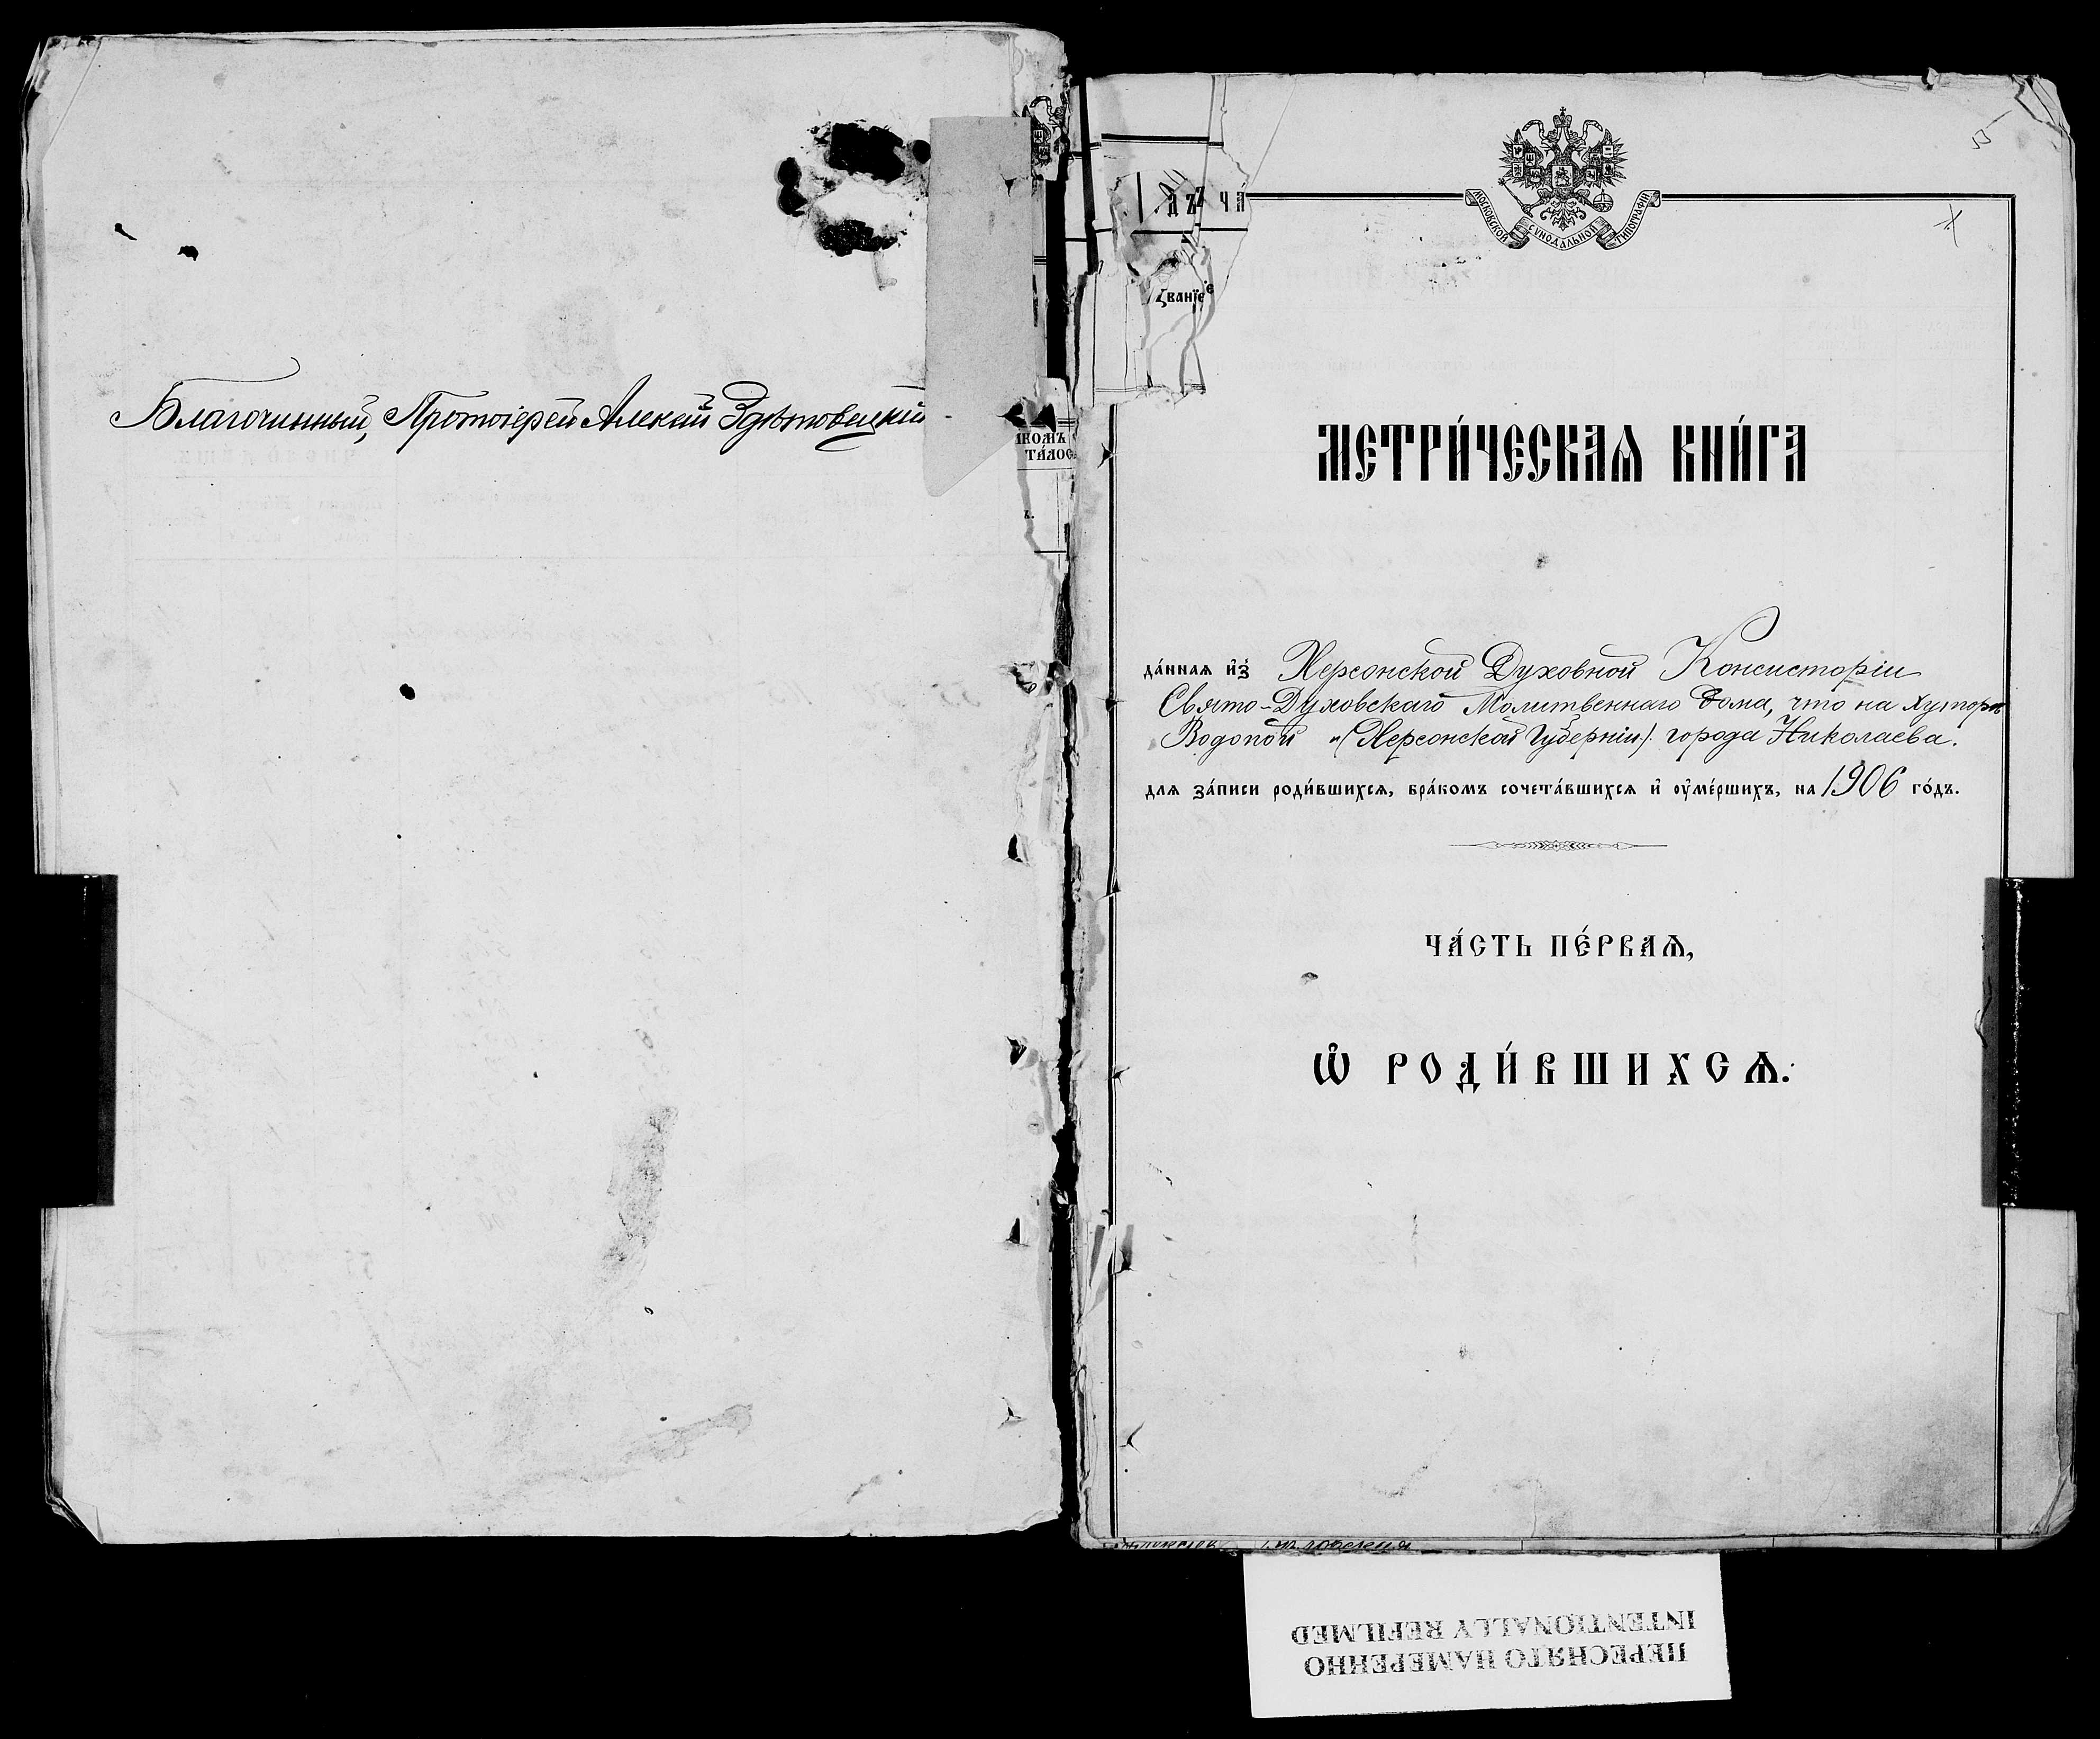 Благочинный, Протоіерей Алексій
МОСКОВСКОЙ СѴНОДАЛЬНОЙ ТИПОГРАФІИ
дъ ча́
званїе
МЕТРИ́ЧЕСКАѦ КНИ́ГА
да́ннаѧ и҆з̾ Херсонской Духовной Консисторіи
Свято-Духовскаго Молитвеннаго Дома, что на хуторѣ
Водопой (Херсонской Губерніи) города Николаева.
длѧ за́писи роди́вшихсѧ, бра́комъ сочета́вшихсѧ и҆ ᲂу҆ме́ршихъ, на 1906 го́дъ.
ЧА́СТЬ ПЕ́РВАѦ,
Ѽ РОДИ́ВШИХСѦ.
ПЕРЕСНЯТО НАМЕРЕННО
INTENTIONALLY REFILMED